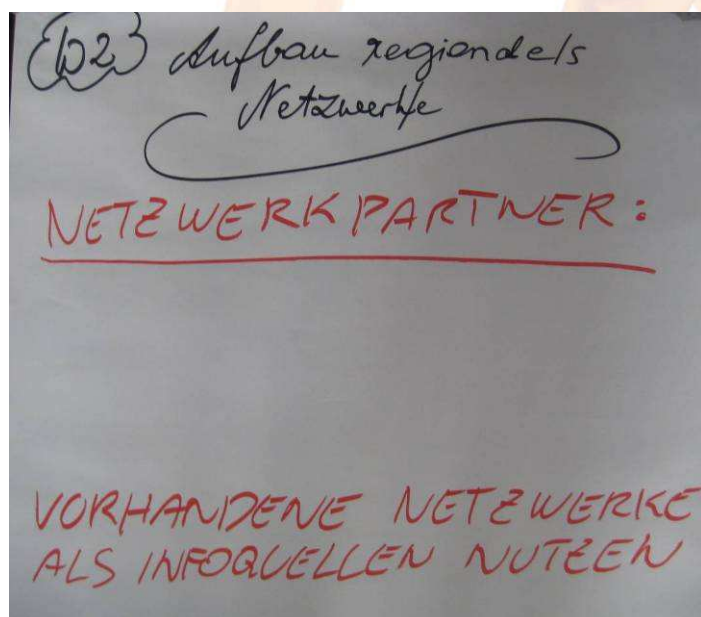 W2 Aufbau regionaler
Netzwerke
NETZWERKPARTNER:
VORHANDENE NETZWERKE
ALS INFOQUELLEN NUTZEN